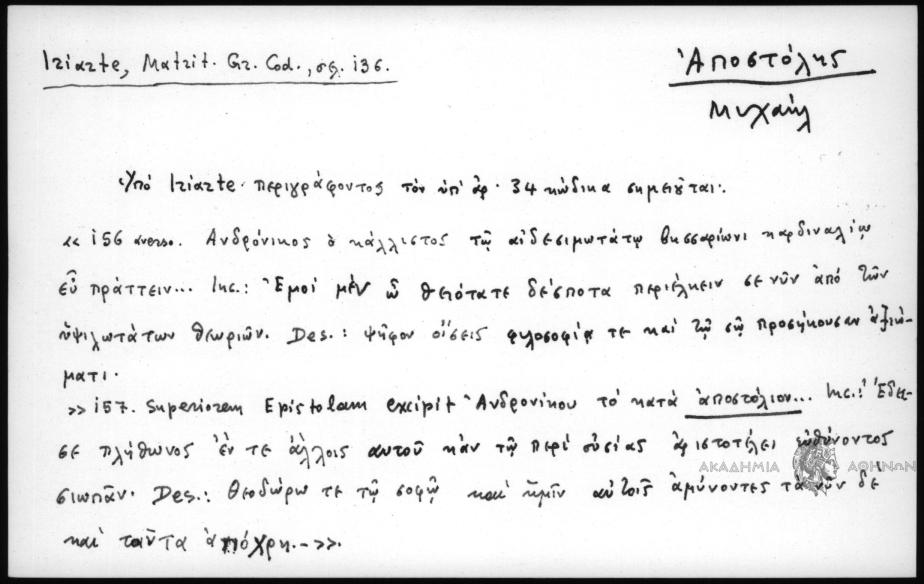 Iriarte, Matrit. Gr. Cod., σς. 136.
Ἀποστόλης
Μιχαήλ
Ὑπό Iriarte περιγράφοντος τόν ὑπ' ἀρ. 34 κώδικα σημειοῦται:
« 156 averso. Ἀνδρόνικος ὁ κάλλιστος τῷ αἰδεσιμωτάτῳ βησσαρίωνι καρδιναλίῳ
εὖ πράττειν... Inc.: Ἐμοί μέν ὦ θειότατε δέσποτα περιέλκειν σε νῦν ἀπό τῶν
ὑψιλωτάτων θεωριῶν. Des.: ψῆφον οἴσεις φιλοσοφίᾳ τε καί τῷ σῷ προσήκουσαν ἀξιώ-
ματι.
>> 157. Superiorem Epistolam excipit Ἀνδρονίκου τό κατά ἀποστόλιον... Inc.: Ἔδει-
σε πλήθωνος ἐν τε ἄλλοις αυτοῦ κἀν τῷ περί οὐσίας ἀριστοτέλει εὐθύνοντος
σιωπᾶν. Des.: Θεοδώρῳ τε τῷ σοφῷ καί ἡμῖν αὐτοῖς ἀμύνοντες τά νῦν δέ
καί ταῦτα ἀπόχρη.->>.
ΑΚΑΔΗΜΙΑ ΑΘΗΝΩΝ